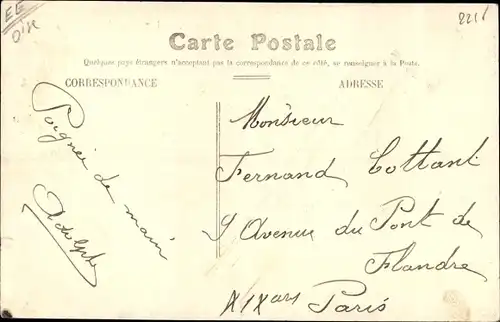 EE
Oise
221
Carte Postale
Quelques pays étrangers n'acceptant pas la correspondance de ce côté, se renseigner à la Poste.
CORRESPONDANCE
ADRESSE
Poignée de main
Adolphe
Monsieur
Fernand Cottant
9 Avenue du Pont de
Flandre
XIXars Paris